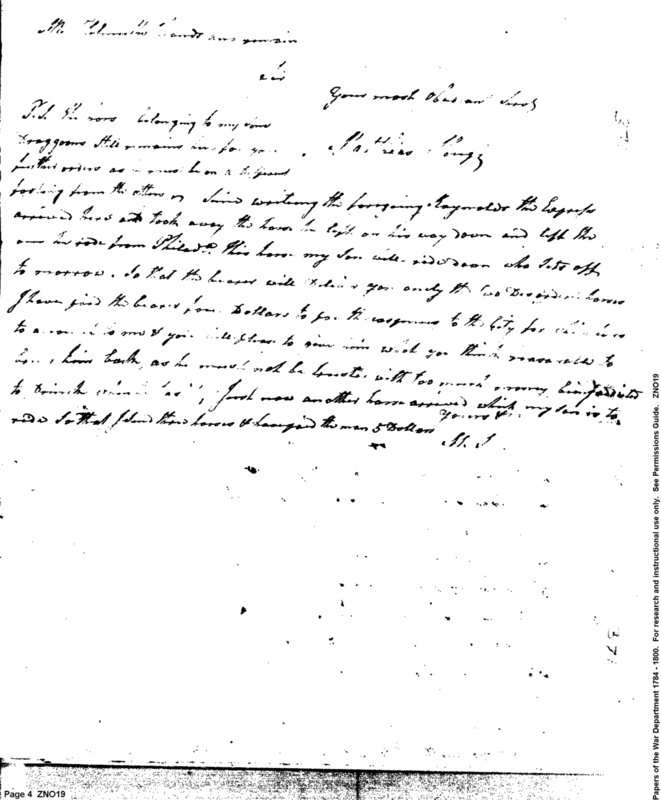 Mr. hands and remain
Sir
Your most Obed
P.S. The belonging to my
Draggoons still remains for you
further orders as must be on a
footing from the others Since writing the foregoing Raynolds the Express
arrived here and took away the horse he left on his way down and left the
one he rode from Philada. this horse my Son will ride down who Sets off
to morrow. So that the bearer will deliver you only the two horses
I have paid the bearer four Dollars to pay the expences to the City for
to me & you will please to give him what you think reasonable to
him back, as he must not be trusted with too much money, being addicted
to Drink Just now another horse arrived which my Son is to
ride So that I Send three horses & have paid the man 5 Dollars
Yours &c.
Page 4 ZNO19
Papers of the War Department 1784 - 1800. For research and instructional use only. See Permissions Guide. ZNO19